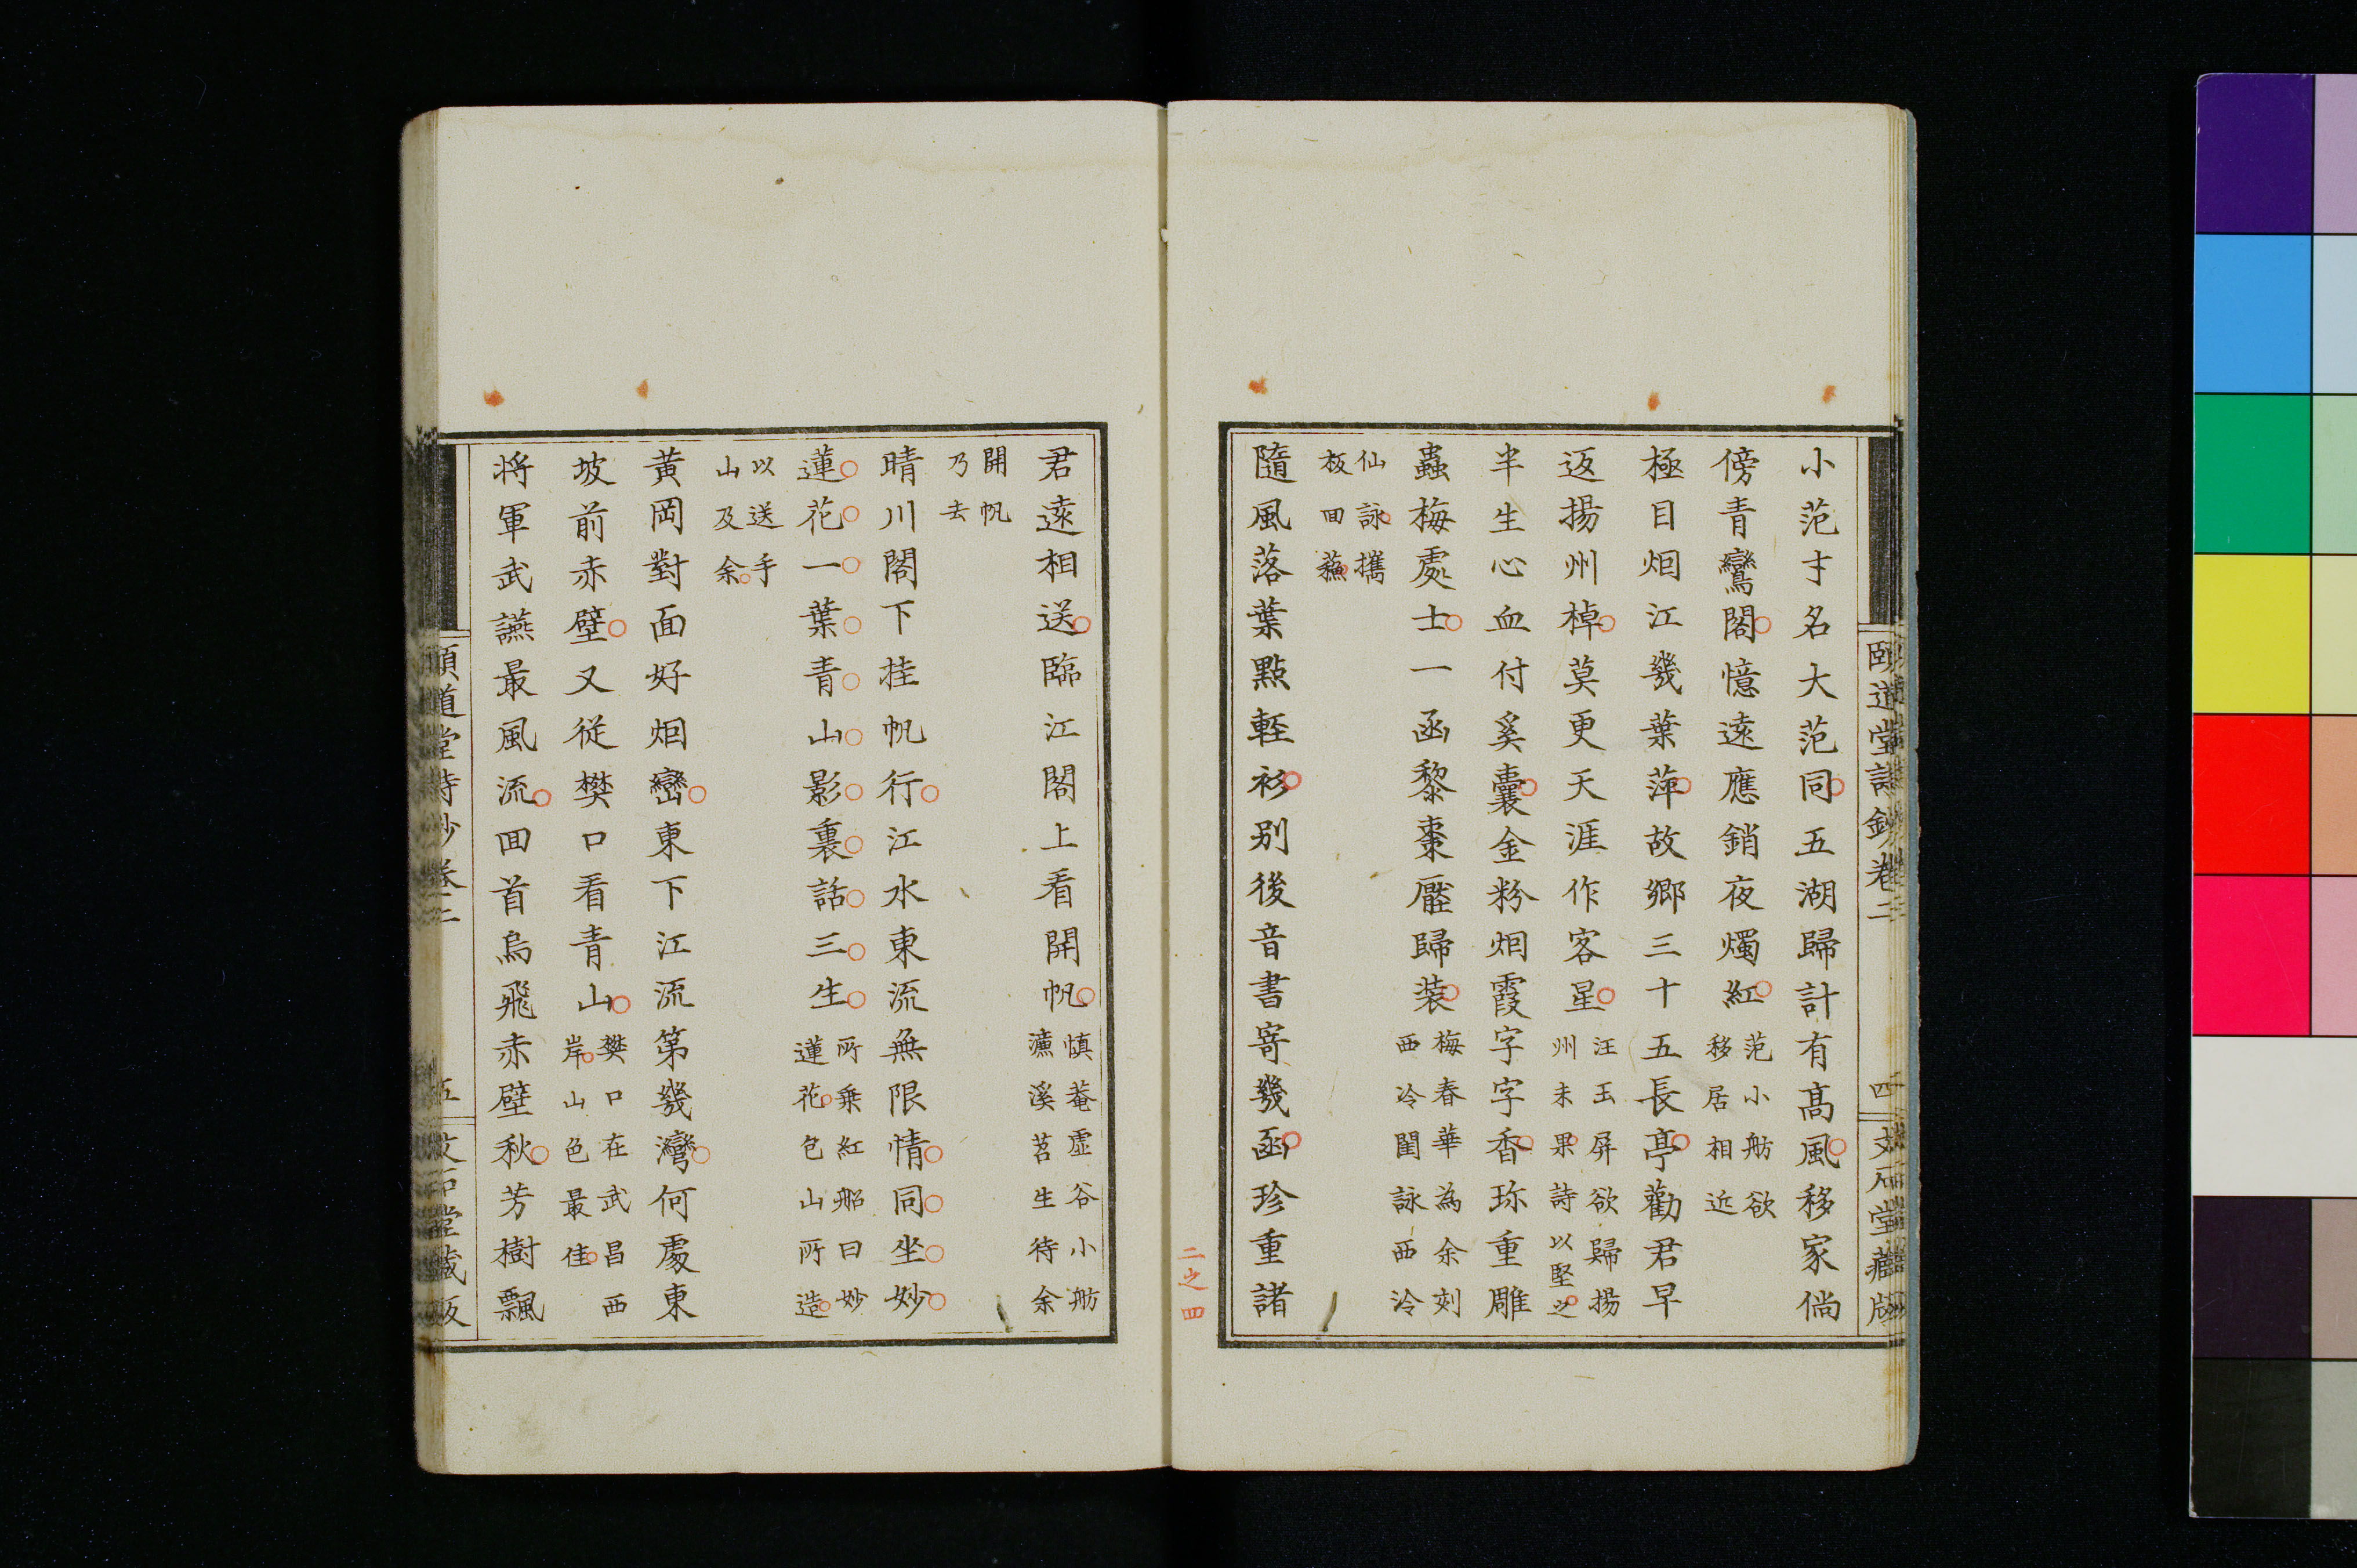 頤道堂詩鈔卷二 四 文石堂藏版
小范才名大范同五湖歸計有髙風移家倘
傍青鸞閣憶遠應銷夜燭紅范小舫欲移居相近
極目烟江幾葉萍故鄉三十五長亭勸君早
返揚州棹莫更天涯作客星汪玉屏欲歸揚州未果詩以堅之
半生心血付奚囊金粉烟霞字字香珎重雕
蟲梅處士一函黎棗壓歸装梅春華為余刻西泠閨詠西泠
仙詠攜板回蘇
隨風落葉點輕衫别後音書寄幾函珍重諸
二之四
君遠相送臨江閣上看開帆慎菴虚谷小舫濂溪苕生待余
開帆乃去
晴川閣下挂帆行江水東流無限情同坐妙
蓮花一葉青山影裏話三生所乗紅船曰妙蓮花包山所造
以送手山及余
黃岡對面好烟巒東下江流第幾灣何處東
坡前赤壁又從樊口看青山樊口在武昌西岸山色最佳
将軍武讌最風流回首烏飛赤壁秋芳樹飄
頤道堂詩鈔卷二 五 文石堂藏版